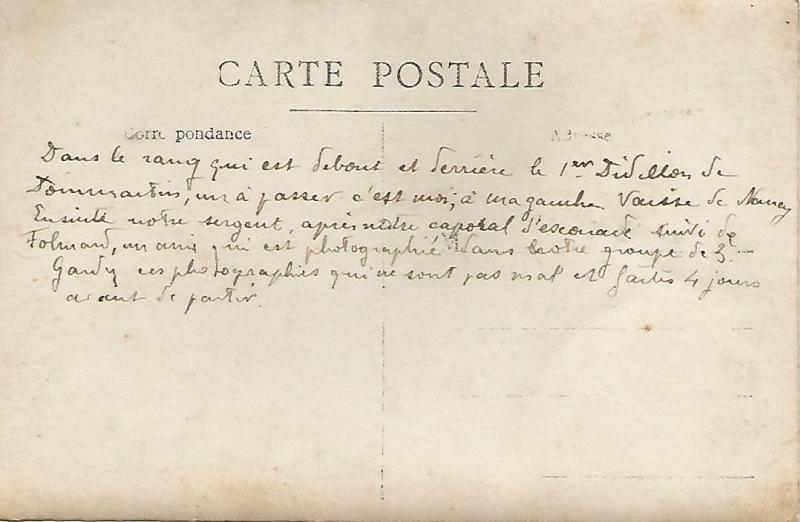 CARTE POSTALE
Correspondance
Adresse
Dans le rang qui est debout et derrière le 1er Didillon de
Dommartin, un à passer c'est moi, à ma gauche Vaisse de Nancy
Ensuite notre sergent, après notre caporal d'escouade suivi de
Folmard, un ami qui est photographié dans notre groupe de 3.—
Gardez ces photographies qui ne sont pas mal et faites 4 jours
avant de partir.